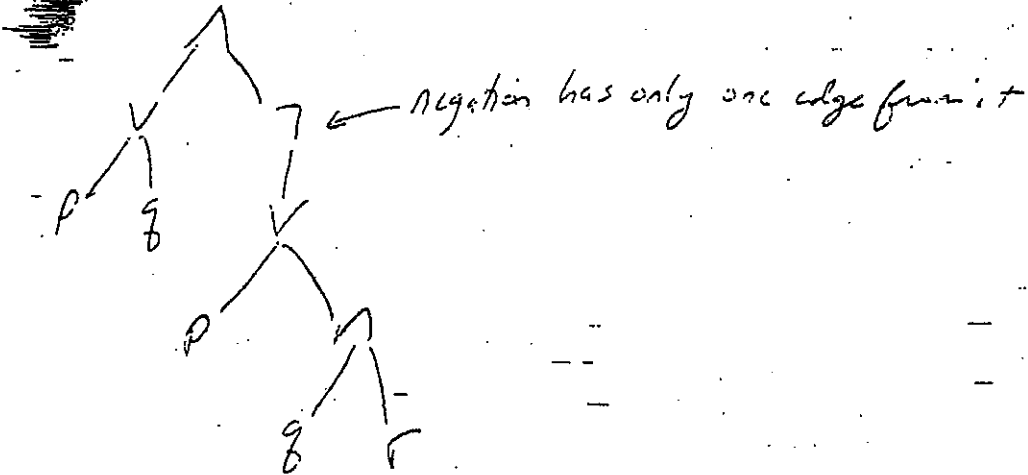 ∧
∨ ¬ ← negation has only one edge from it
p q ∨
p ∧
q r